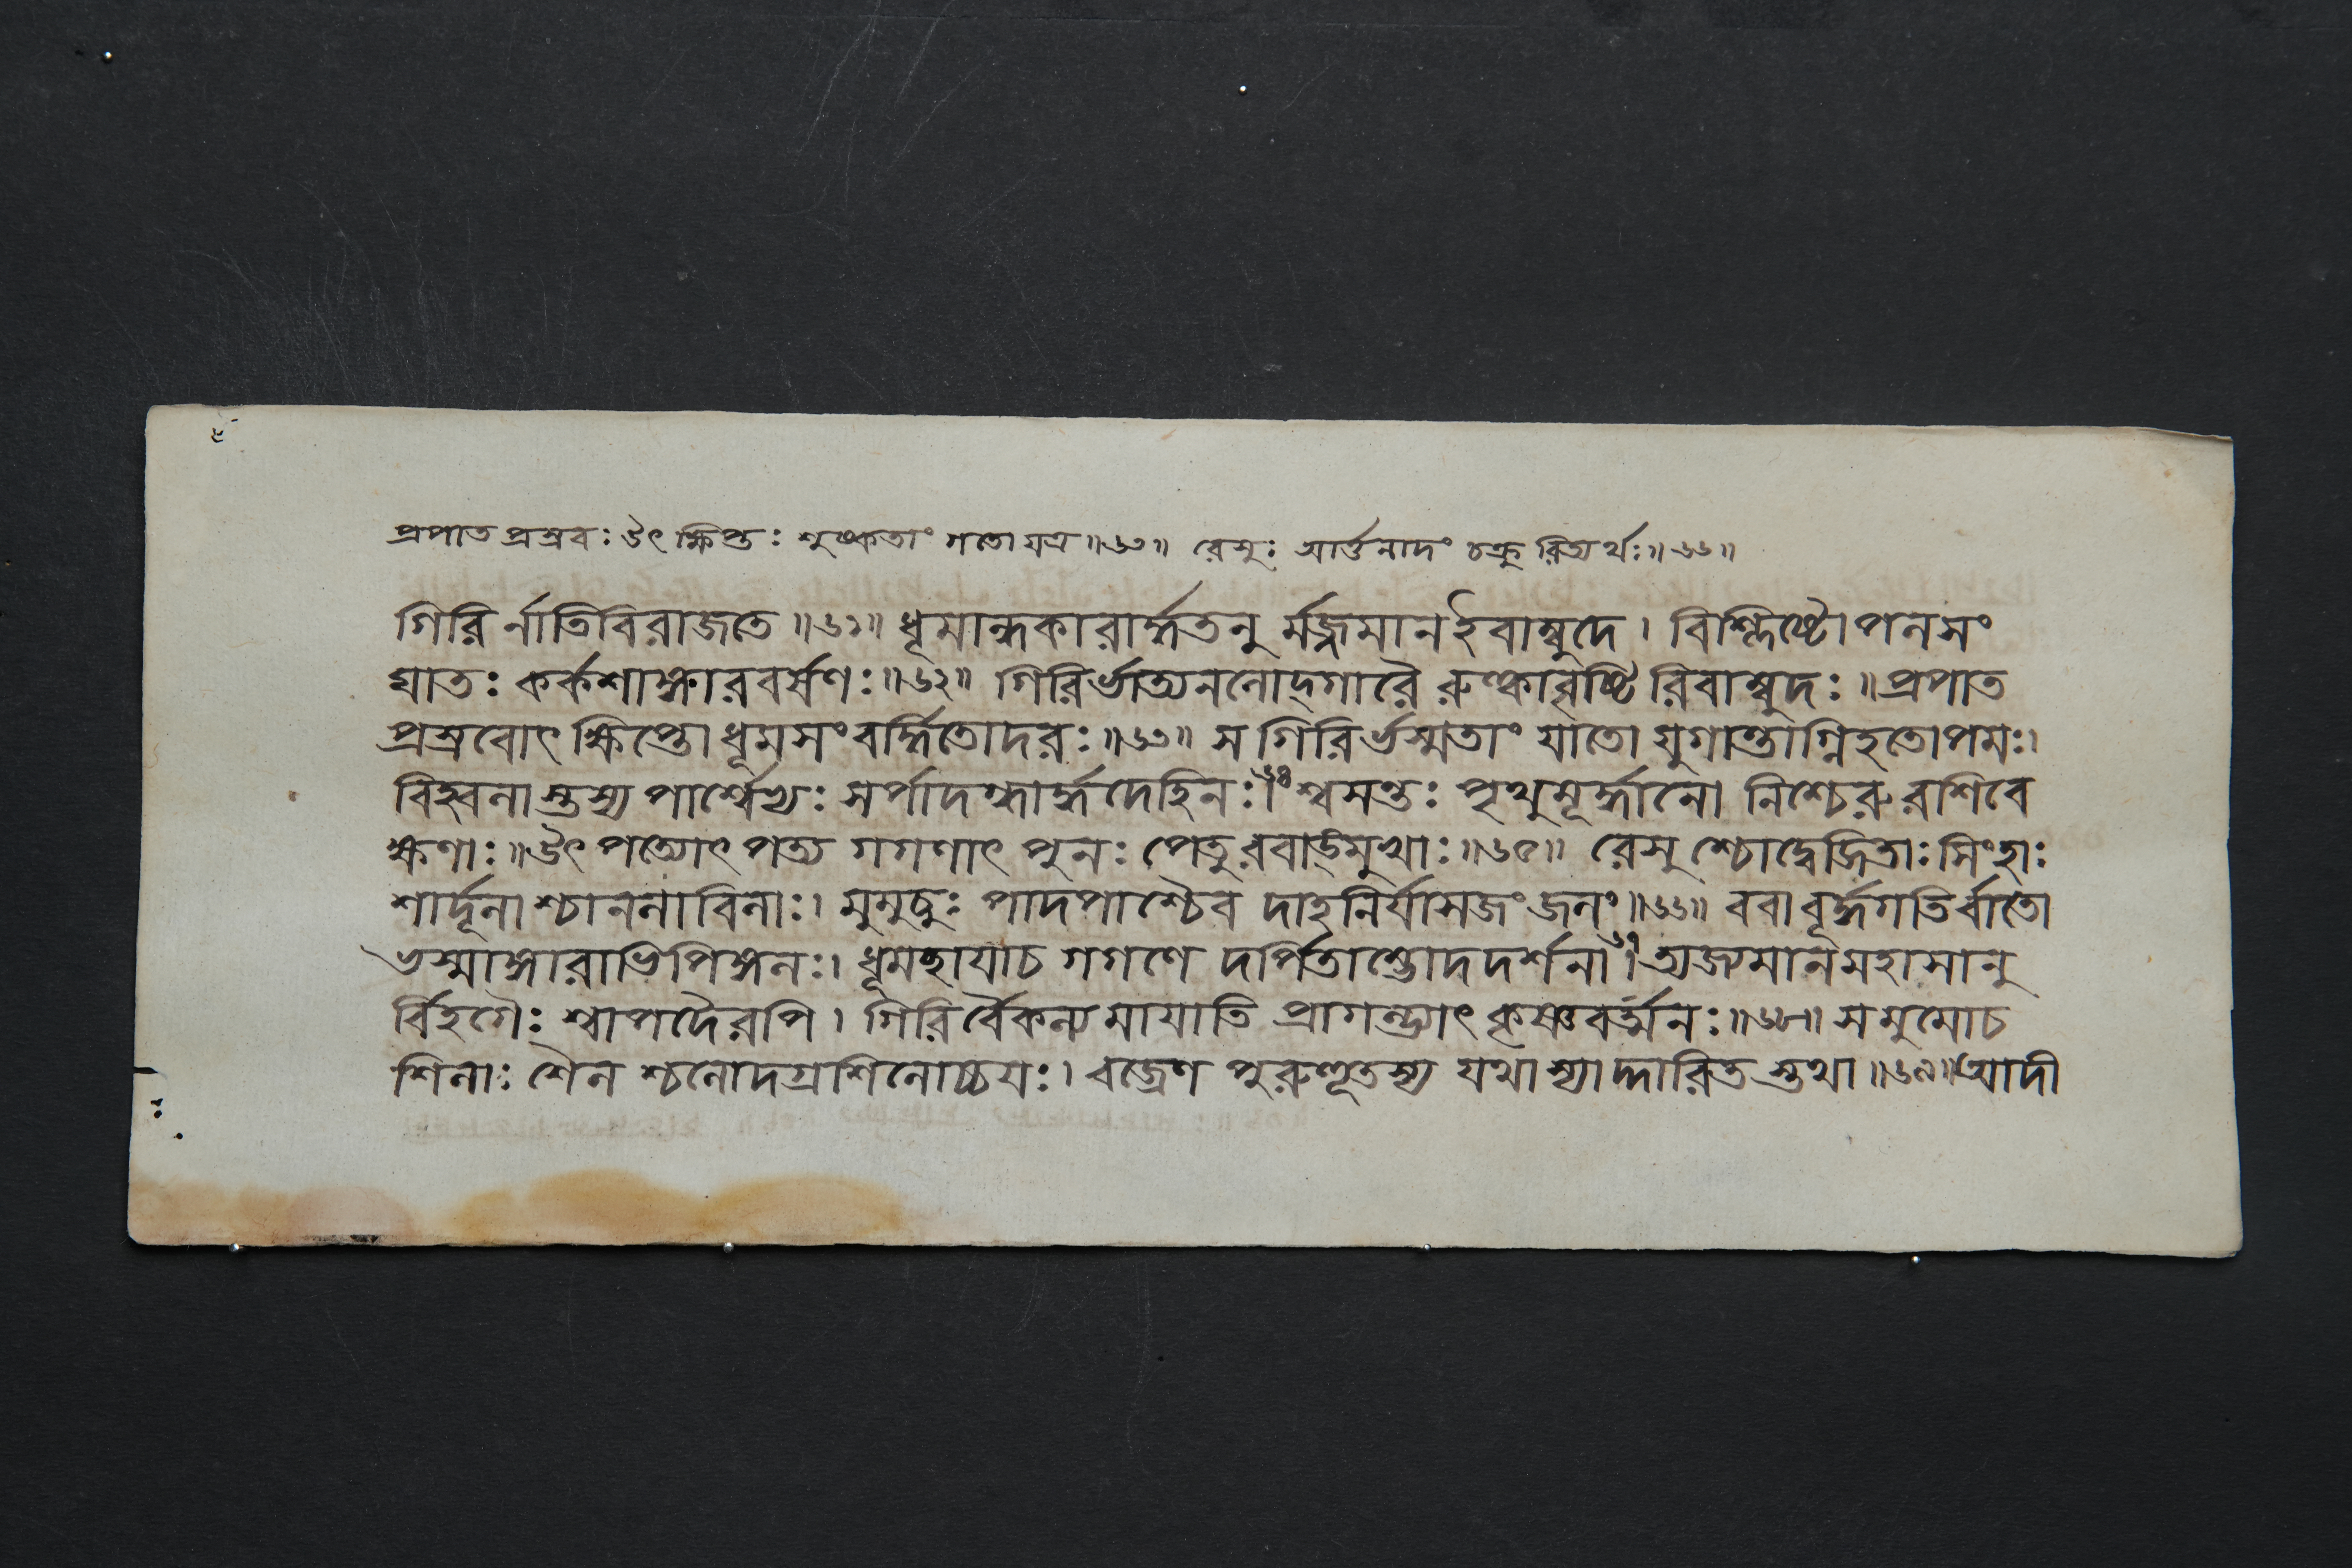 প্রপাত প্রস্রবঃ উৎক্ষিপ্তঃ শুষ্কতাং গতো যত্র॥৬৩॥ রেসুঃ আর্ত্তনাদং চক্রুরিত্যর্থঃ॥৬৬॥
গিরির্নাতিবিরাজতে॥৬১॥ ধূমান্ধকারার্দ্ধতনুর্মজ্জমানইবাম্বুদে। বিশ্লিষ্টোপলসং
ঘাতঃ কর্কশাঙ্গারবর্ষণঃ॥৬২॥ গিরির্ভাত্যনলোদ্গারৈ রুল্কাবৃষ্টিরিবাম্বুদঃ॥ প্রপাত
প্রস্রবোৎক্ষিপ্তো ধূমসংবর্দ্ধিতোদরঃ॥৬৩॥ স গিরির্ভস্মতাং যাতো যুগান্তাগ্নিহতোপমঃ।
বিহ্বলাস্তস্য পার্শ্বেভ্যঃ সর্পাদগ্ধার্দ্ধদেহিনঃ।৬৪ শ্বসন্তঃ পৃথুমূর্দ্ধানো নিশ্চেরুরশিবে
ক্ষণাঃ॥ উৎপত্যোৎপত্য গগণাৎ পুনঃ পেতুরবাঙ্মুখাঃ॥৬৫॥ রেসুশ্চোদ্বেজিতাঃ সিংহাঃ
শার্দূলাশ্চানলাবিলাঃ। মুমুচুঃ পাদপাশ্চৈব দাহনির্যাসজং জলং॥৬৬॥ ববাবূর্দ্ধগতির্বাতো
ভস্মাঙ্গারাভিপিঙ্গলঃ। ধূমচ্ছায়াচ গগণে দর্পিতাম্ভোদদর্শনা।৬৭ ত্যজ্যমানমহাসানু
র্বিহগৈঃ শ্বাপদৈরপি। গিরির্বৈকল্যমায়াতি প্রাগল্ভ্যাৎ কৃষ্ণবর্ত্মনঃ॥৬৮॥ স মুমোচ
শিলাঃ শৈলশ্চলোদগ্রশিলোচ্চয়ঃ। বজ্রেণ পুরুহূতস্য যথা স্যাদ্দারিতস্তথা॥৬৯॥ আদী